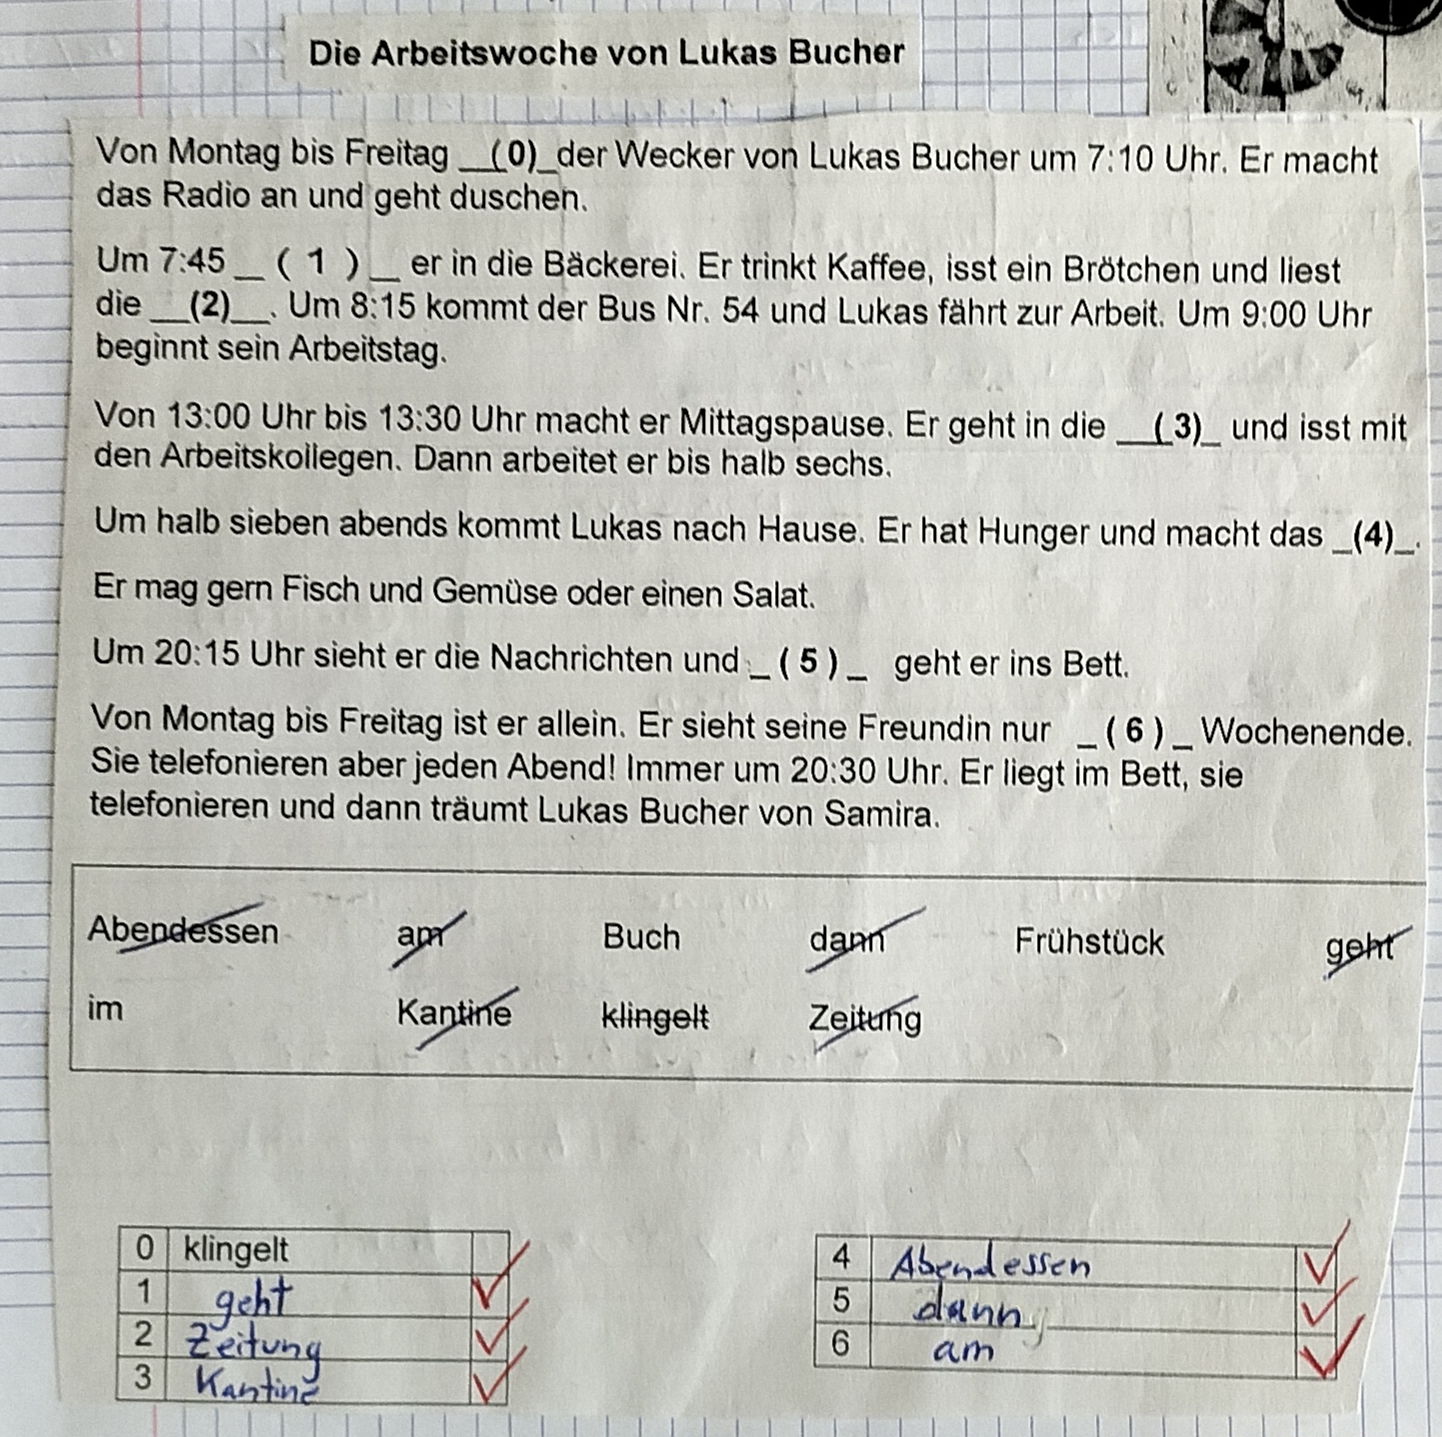 Die Arbeitswoche von Lukas Bucher
Von Montag bis Freitag __(0)_der Wecker von Lukas Bucher um 7:10 Uhr. Er macht
das Radio an und geht duschen.
Um 7:45 _ ( 1 ) _ er in die Bäckerei. Er trinkt Kaffee, isst ein Brötchen und liest
die __(2)__. Um 8:15 kommt der Bus Nr. 54 und Lukas fährt zur Arbeit. Um 9:00 Uhr
beginnt sein Arbeitstag.
Von 13:00 Uhr bis 13:30 Uhr macht er Mittagspause. Er geht in die __(3)_ und isst mit
den Arbeitskollegen. Dann arbeitet er bis halb sechs.
Um halb sieben abends kommt Lukas nach Hause. Er hat Hunger und macht das _(4)_.
Er mag gern Fisch und Gemüse oder einen Salat.
Um 20:15 Uhr sieht er die Nachrichten und _ ( 5 ) _ geht er ins Bett.
Von Montag bis Freitag ist er allein. Er sieht seine Freundin nur _ ( 6 ) _ Wochenende.
Sie telefonieren aber jeden Abend! Immer um 20:30 Uhr. Er liegt im Bett, sie
telefonieren und dann träumt Lukas Bucher von Samira.
Abendessen am Buch dann Frühstück geht
im Kantine klingelt Zeitung
0 klingelt
1 geht
2 Zeitung
3 Kantine
4 Abendessen
5 dann
6 am